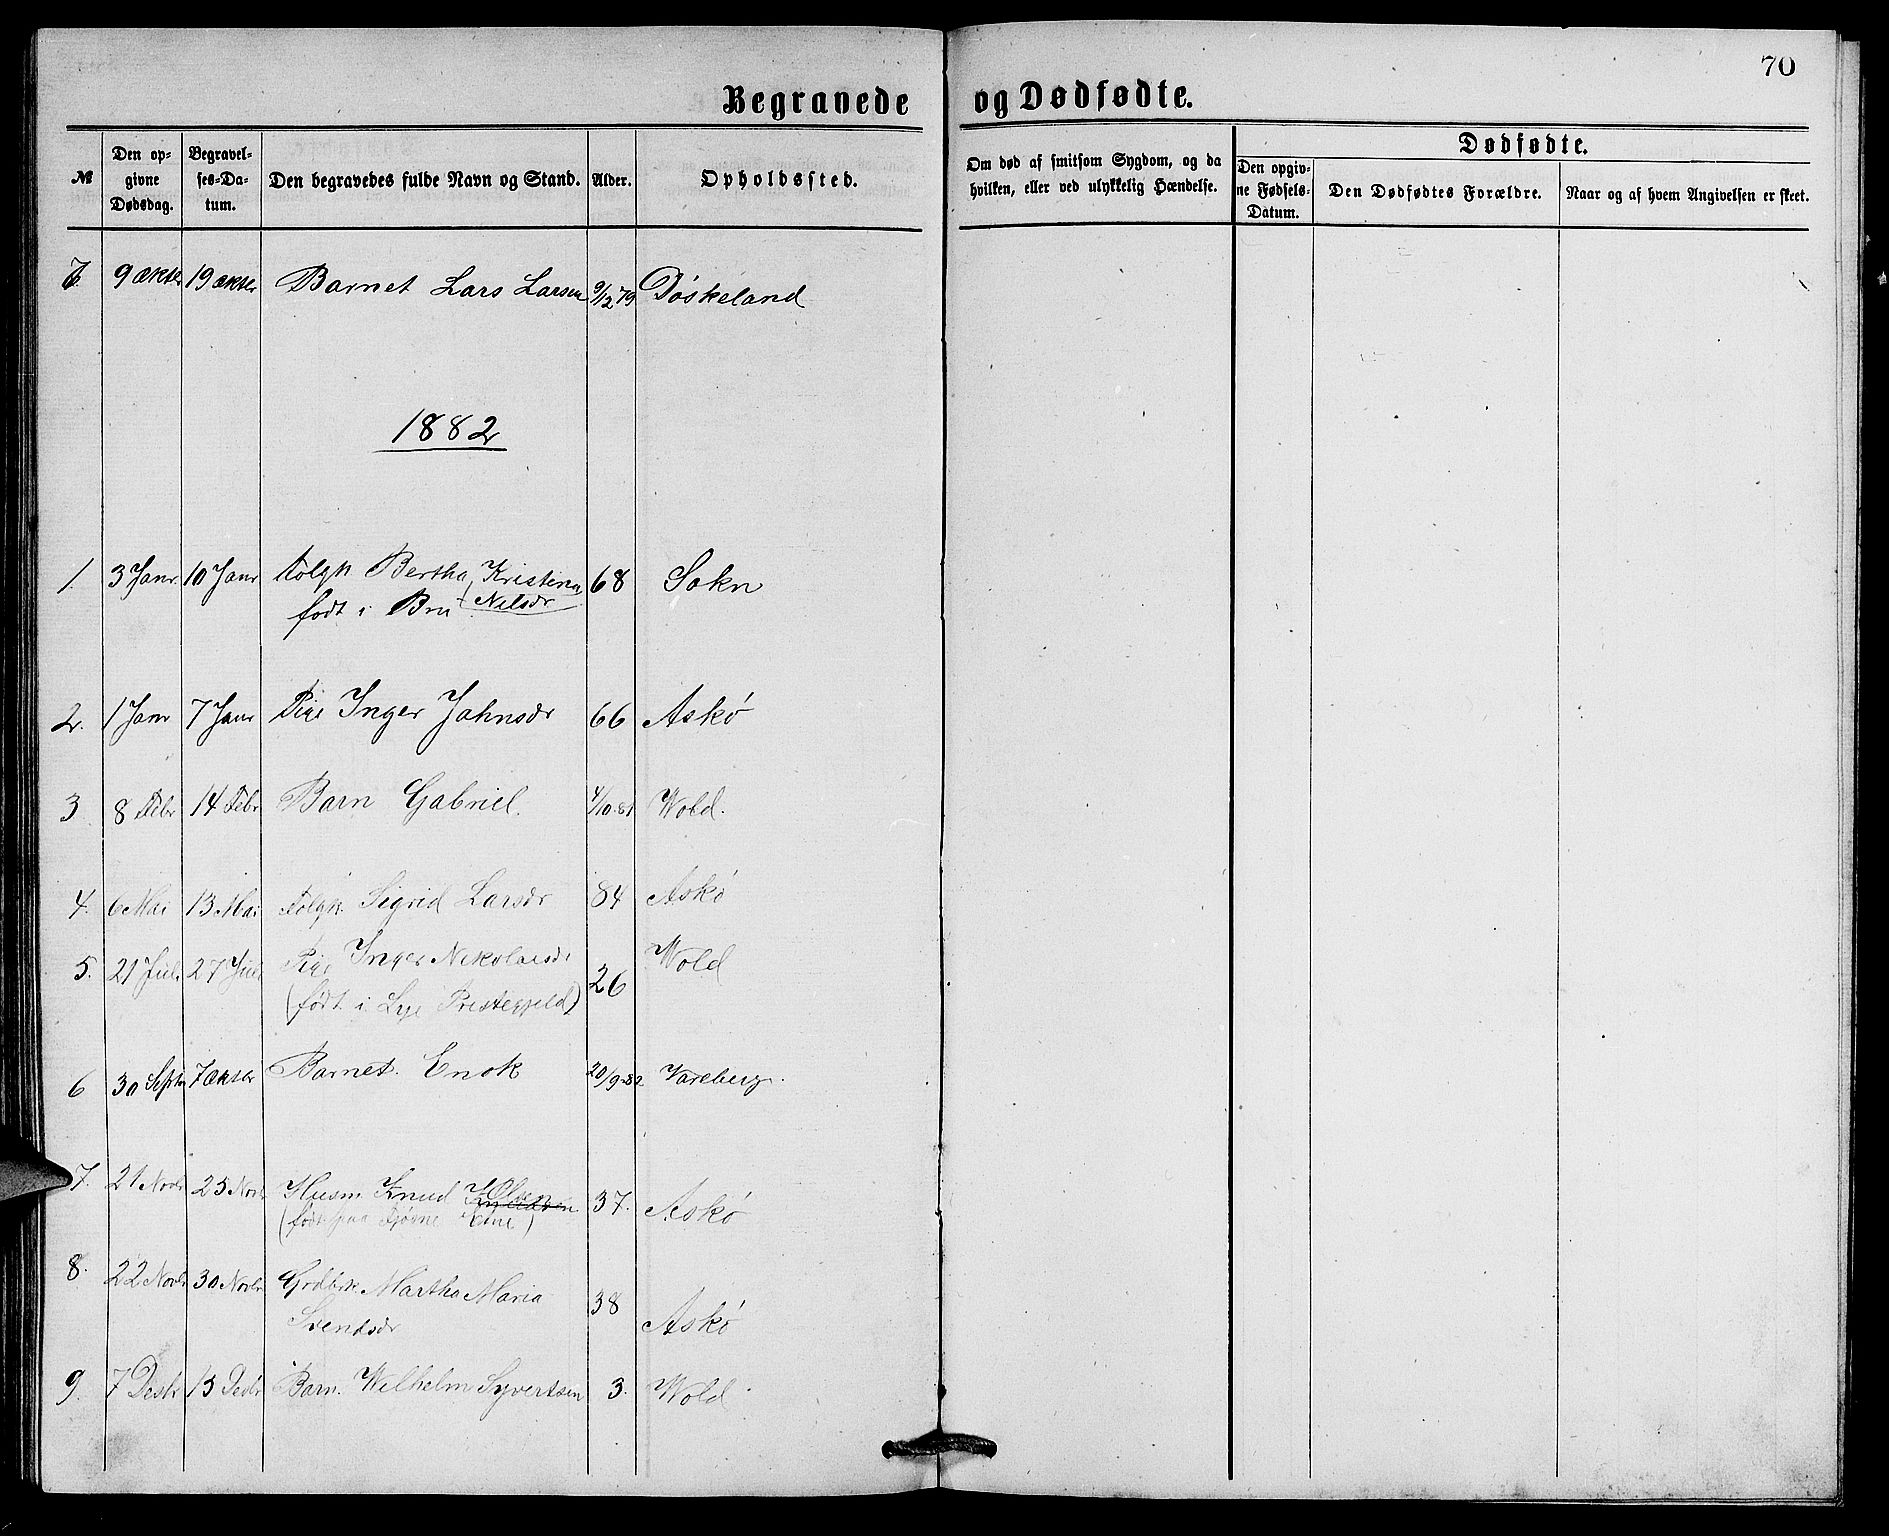 70
Begravede og Dødfødte.
№
Den opgivne Dødsdag.
Begravelses-Datum.
Den begravedes fulde Navn og Stand.
Alder.
Opholdssted.
Om død af smitsom Sygdom, og da hvilken, eller ved ulykkelig Hændelse.
Dødfødte.
Den opgivne Fødsels-Datum.
Den Dødfødtes Forældre.
Naar og af hvem Angivelsen er skeet.
7. 9 19 Barnet Lars Larsen 9/2 79 Døskeland
1882
1. 3 Janr. 10 Janr Folgk. Bertha Kristina 68 Sokn
født i Bru Nilsdr
2. 1 Janr 7 Janr Pige Inger Jahnsdr 66 Askø
3 8 Febr 14 Febr Barn Gabriel. 4/10 81 Wold.
4. 6 Mai 13 Mai Folgk. Sigrid Larsdr 84 Askø
5. 21 Juli 27 Juli Pige Inger Nikolaisdr 26 Wold
(født i Lye Prestegjeld)
6 30 Septr 7 Barnet. Enok 20/9-82 Vareberg.
7. 21 Novbr 25 Novbr Husm. Knud Olsen 37. Askø
(født paa)
8. 22 Novbr 30 Novbr Grdbk. Martha Maria 38 Askø
Svendsdr
9. 7 Desbr 13 Desbr Barn. Wilhelm Syvertsen 3. Wold